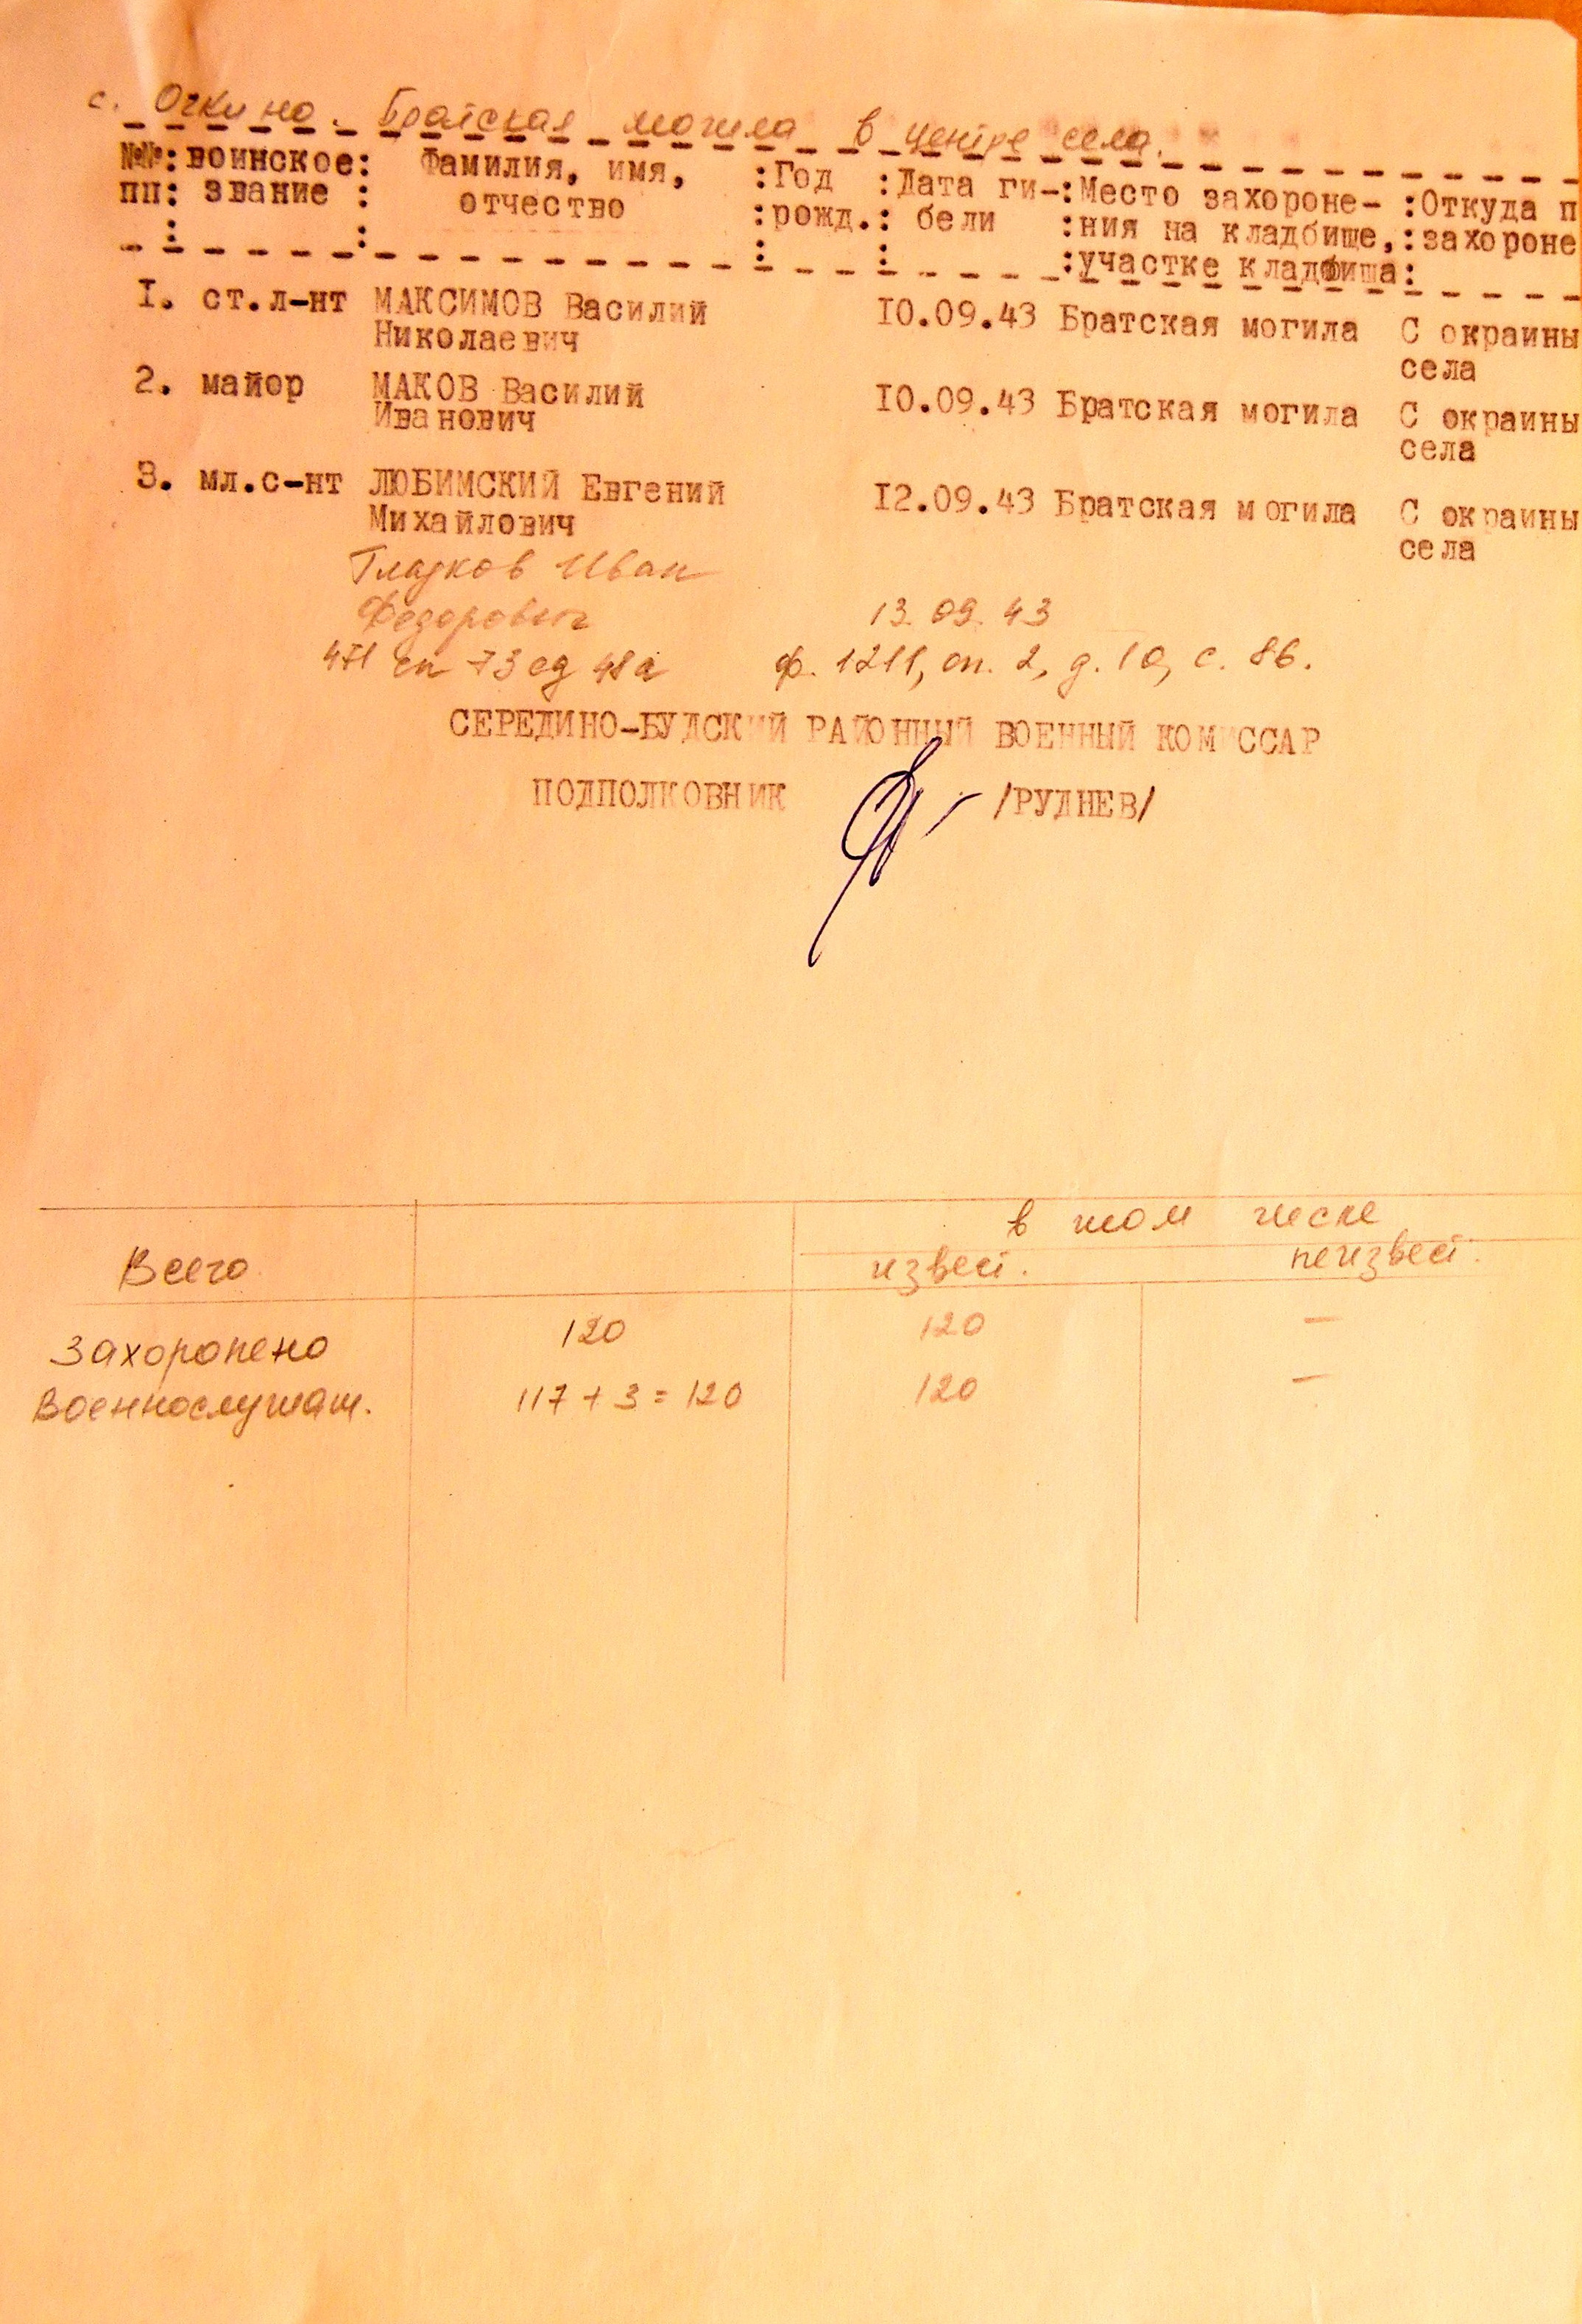 с. Очкино. Братская могила в центре села.
№№: воинское: Фамилия, имя, :Год :Дата ги-:Место захороне- :Откуда п
пп: звание : отчество :рожд.: бели :ния на кладбище,:захороне
: : : : :участке кладбища:
1. ст.л-нт МАКСИМОВ Василий 10.09.43 Братская могила С окраины
Николаевич села
2. майор МАКОВ Василий 10.09.43 Братская могила С окраины
Иванович села
3. мл.с-нт ЛЮБИМСКИЙ Евгений 12.09.43 Братская могила С окраины
Михайлович села
Гладков Иван
Федорович 13.09.43
471 сп 73 сд 48а ф. 1211, оп. 2, д. 10, с. 86.
СЕРЕДИНО-БУДСКИЙ РАЙОННЫЙ ВОЕННЫЙ КОМИССАР
ПОДПОЛКОВНИК /РУДНЕВ/
в том числе
Всего извест. неизвест.
Захоронено 120 120 —
Военнослужащ. 117 + 3 = 120 120 —